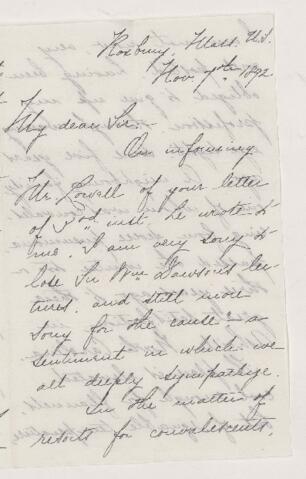 Roxbury, Mass. U.S.
Nov. 7th 1892
My dear Sir:-
On informing
Mr. Lowell of your letter
of 3rd inst. he wrote to
me. "I am very sorry to
lose Sir Wm Dawson's lec-
tures, and still more
sorry for the cause" - a
sentiment in which we
all deeply sympathize.
In the matter of
resorts for convalescents,